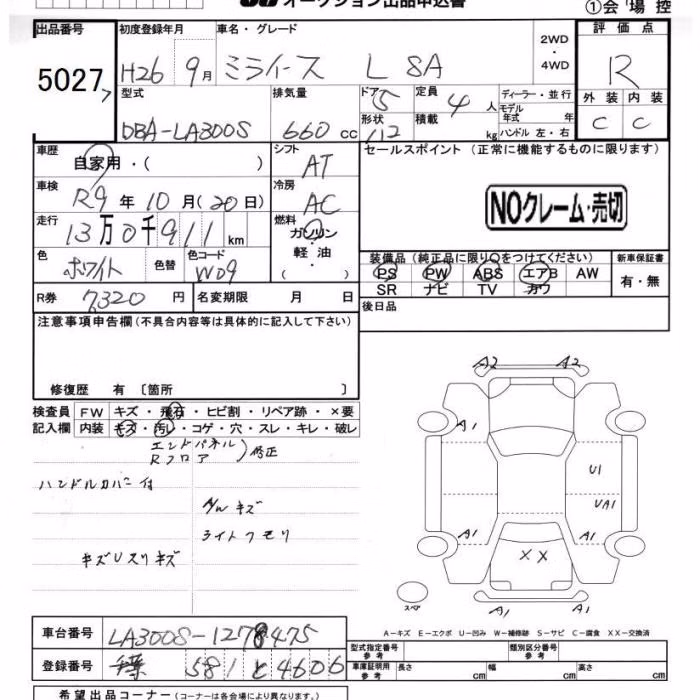 オークション出品申込書
①会場控
出品番号 初度登録年月 車名・グレード 2WD・4WD 評価点
5027 H26 9月 ミライース L SA R
外装 内装
C C
型式 排気量 ドア 定員 ディーラー・並行
DBA-LA300S 660 cc 5 4人
形状 積載 kg モデル年式 年式
ハンドル 左・右
車歴 シフト セールスポイント（正常に機能するものに限ります）
自家用・( ) AT
車検 冷房
R9年10月(20日) AC
NOクレーム・売切
走行 燃料
13万0千911km ガソリン・軽油・( )
色 色替 色コード
ホワイト W09
装備品（純正品に限り○をつけてください） 新車保証書
PS PW ABS エアB AW 有・無
SR ナビ TV カワ
R券 7320円 名変期限 月 日
後日品
注意事項申告欄（不具合内容等は具体的に記入して下さい）
修復歴 有〔箇所 〕
検査員 FW キズ・飛石・ヒビ割・リペア跡・×要
記入欄 内装 キズ・汚れ・コゲ・穴・スレ・キレ・破レ
エンドパネル
Rフロア
修正
ハンドルカバー付
キズ
ライトクモリ
キズUスリキズ
A2 A2
A1
U1
UA1
A1 A1
XX
A1 A1
スペア
A-キズ E-エクボ U-凹み W-補修跡 S-サビ C-腐食 XX-交換済
車台番号 LA300S-1278475
登録番号 千葉 581 と 4606
型式指定番号 参考 類別区分番号 参考
車庫証明用 参考 長さ cm 幅 cm 高さ cm
希望出品コーナー（コーナーは各会場により異なります。）